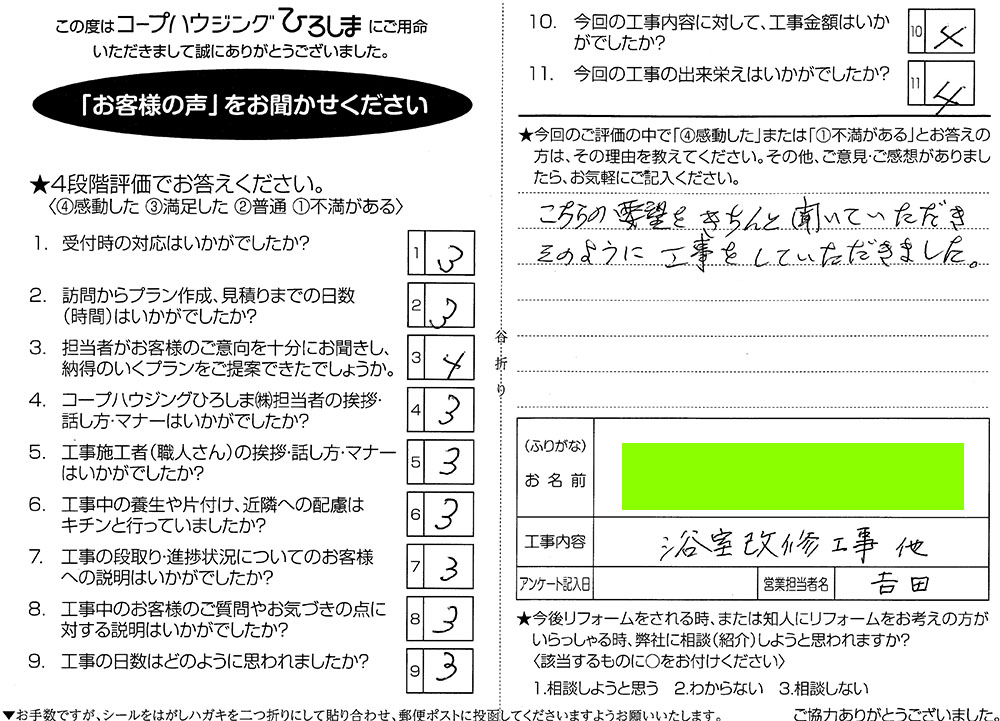 この度はコープハウジングひろしまにご用命
いただきまして誠にありがとうございました。
「お客様の声」をお聞かせください
★4段階評価でお答えください。
〈④感動した ③満足した ②普通 ①不満がある〉
1. 受付時の対応はいかがでしたか?
1 3
2. 訪問からプラン作成、見積りまでの日数
(時間)はいかがでしたか?
2 3
3. 担当者がお客様のご意向を十分にお聞きし、
納得のいくプランをご提案できたでしょうか。
3 4
4. コープハウジングひろしま㈱担当者の挨拶・
話し方・マナーはいかがでしたか?
4 3
5. 工事施工者(職人さん)の挨拶・話し方・マナー
はいかがでしたか?
5 3
6. 工事中の養生や片付け、近隣への配慮は
キチンと行っていましたか?
6 3
7. 工事の段取り・進捗状況についてのお客様
への説明はいかがでしたか?
7 3
8. 工事中のお客様のご質問やお気づきの点に
対する説明はいかがでしたか?
8 3
9. 工事の日数はどのように思われましたか?
9 3
谷折り
10. 今回の工事内容に対して、工事金額はいか
がでしたか?
10 4
11. 今回の工事の出来栄えはいかがでしたか?
11 4
★今回のご評価の中で「④感動した」または「①不満がある」とお答えの
方は、その理由を教えてください。その他、ご意見・ご感想がありまし
たら、お気軽にご記入ください。
こちらの要望をきちんと聞いていただき
そのように工事をしていただきました。
(ふりがな)
お名前
工事内容 浴室改修工事 他
アンケート記入日 営業担当者名 吉田
★今後リフォームをされる時、または知人にリフォームをお考えの方が
いらっしゃる時、弊社に相談(紹介)しようと思われますか?
〈該当するものに○をお付けください〉
1.相談しようと思う 2.わからない 3.相談しない
▼お手数ですが、シールをはがしハガキを二つ折りにして貼り合わせ、郵便ポストに投函してくださいますようお願いいたします。 ご協力ありがとうございました。